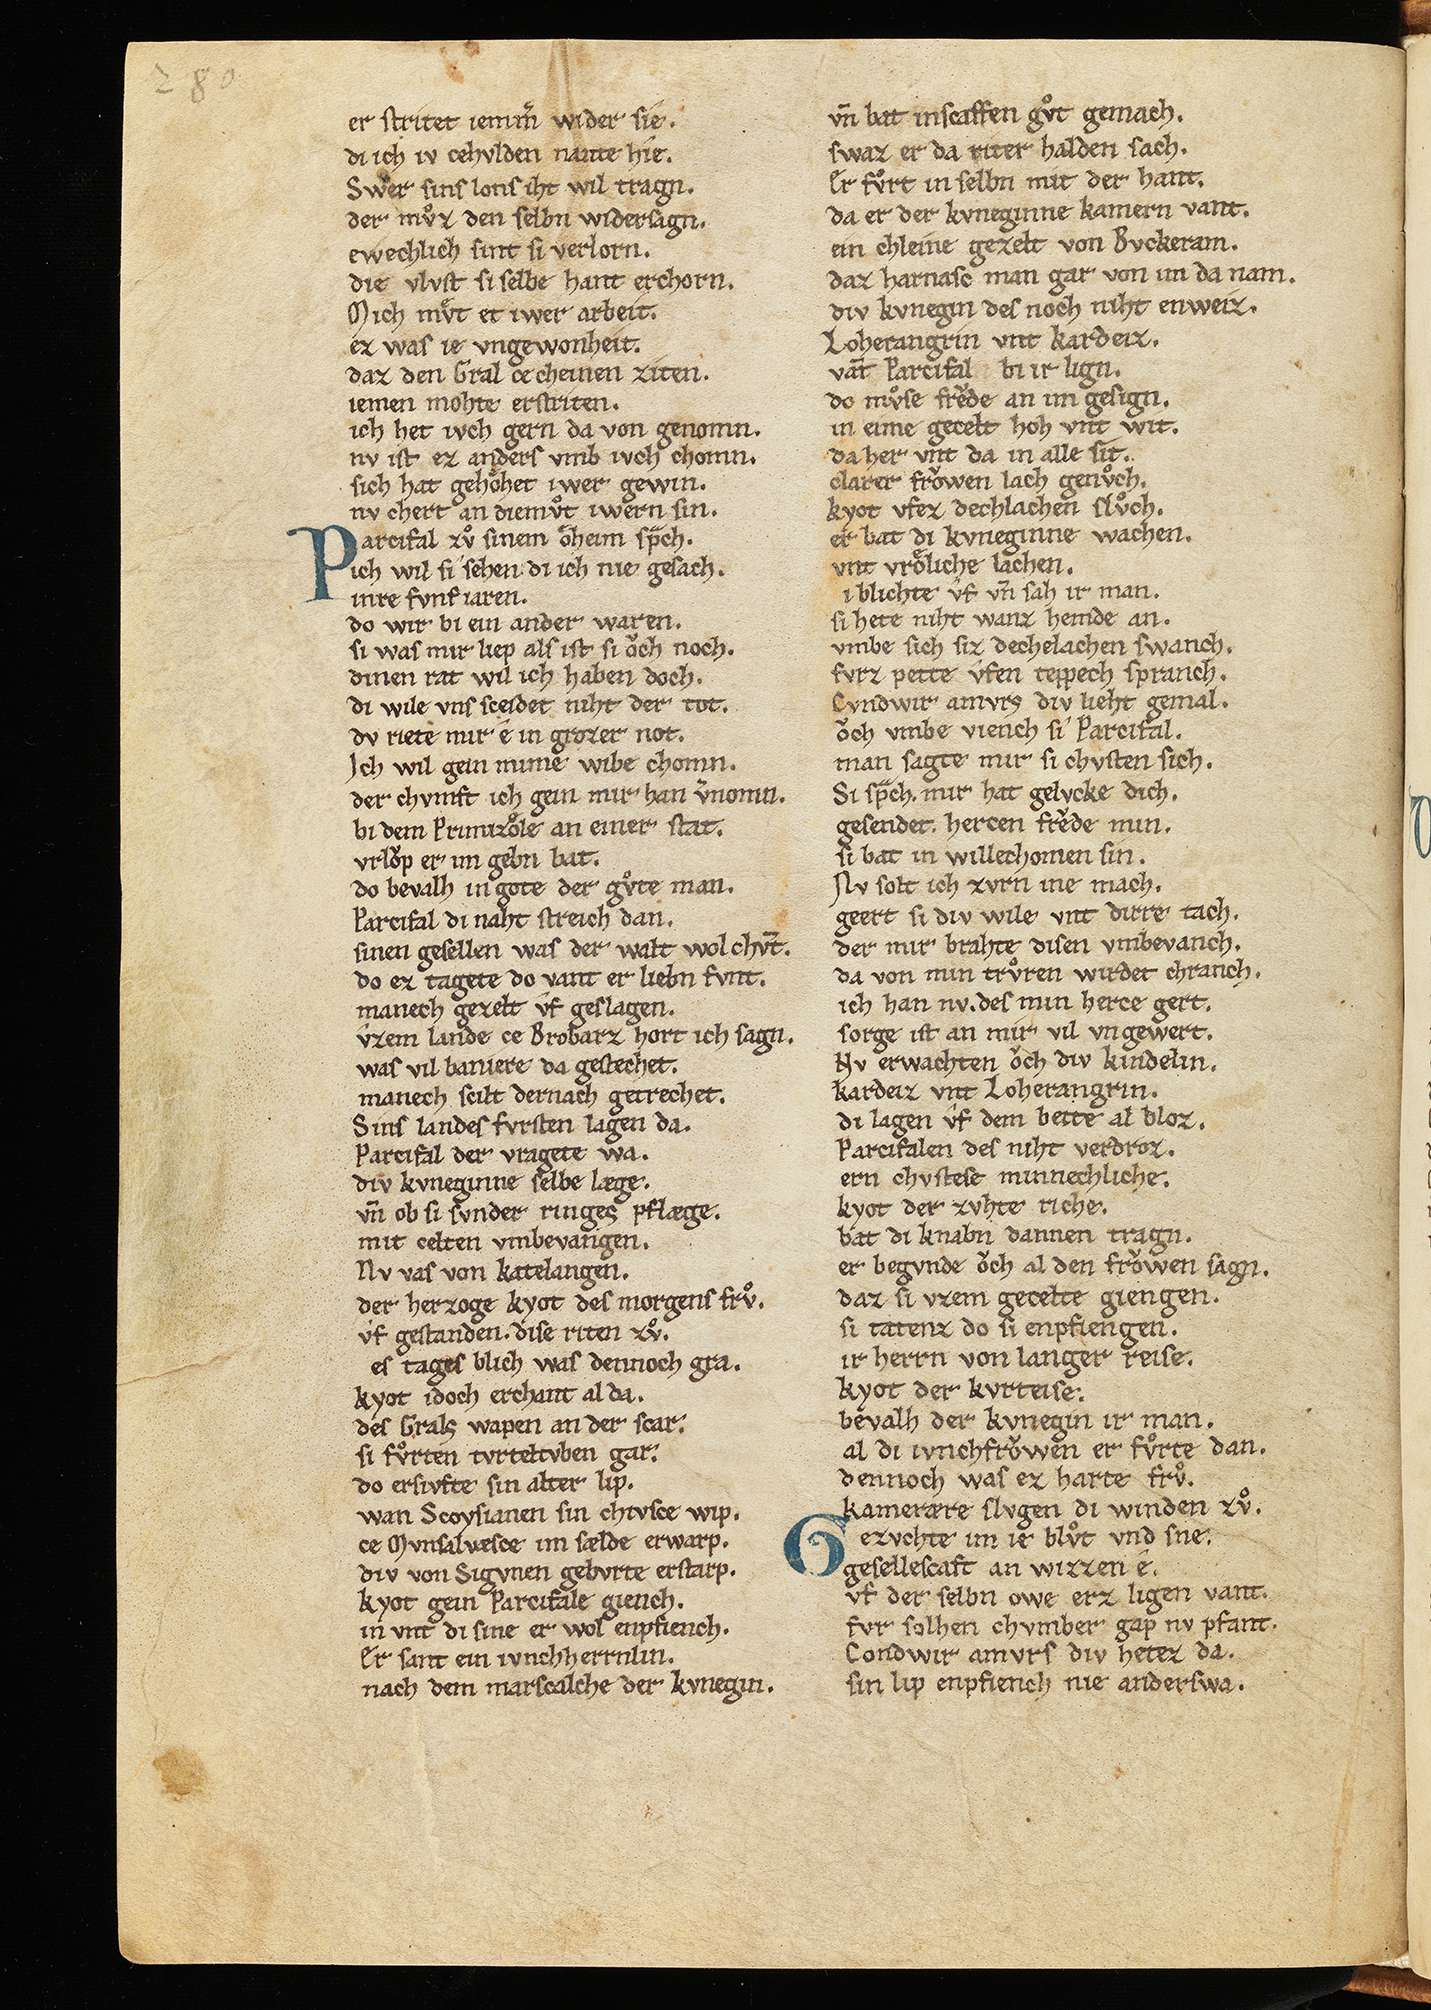 280
er stritet iemm̄ wider sie.
di ich iv cehvlden nante hie.
Swer sins lons iht wil tragn.
der mvͦz den selbn widersagn.
ewechlich sint si verlorn.
die vlvst si selbe hant erchorn.
Mich mvͤt et iwer arbeit.
ez was ie vngewonheit.
daz den Gral ce cheinen ziten.
iemen mohte erstriten.
ich het ivch gern da von genomn.
nv ist ez anders vmb ivch chomn.
sich hat gehoͤhet iwer gewin.
nv chert an diemvͦt iwern sin.
Parcifal zvͦ sinem oͤheim sp̄ch.
ich wil si sehen di ich nie gesach.
inre fvnf iaren.
do wir bi ein ander waren.
si was mir liep als ist si oͮch noch.
dinen rat wil ich haben doch.
di wile vns sceidet niht der tot.
dv riete mir é in grozer not.
Ich wil gein mime wibe chomn.
der chvmft ich gein mir han v̄nomn.
bi dem Primizoͤle an einer stat.
vrloͮp er im gebn bat.
do bevalh in gote der gvͦte man.
Parcifal di naht streich dan.
sinen gesellen was der walt wol chvn̄t.
do ez tagete do vant er liebn fvnt.
manech gezelt v́f geslagen.
v́zem lande ce Brobarz hort ich sagn.
was vil baniere da gestechet.
manech scilt dernach getrechet.
Sins landes fvrsten lagen da.
Parcifal der vragete wa.
div kvneginne selbe læge.
vn̄ ob si svnder ringes pflæge.
mit celten vmbevangen.
Nv vas von katelangen.
der herzoge kyot des morgens frvͦ.
v́f gestanden. dise riten zvͦ.
es tages blich was dennoch gra.
kyot idoch erchant al da.
des Grals wapen an der scar.
si fvͦrten tvrteltvben gar.
do ersivfte sin alter lip.
wan Scoysianen sin chivsce wip.
ce Mvnsalvæsce im sælde erwarp.
div von Sigvnen gebvrte erstarp.
kyot gein Parcifale giench.
in vnt di sine er wol enpfiench.
Er sant ein ivnchherrnlin.
nach dem marscalche der kvnegin.
vn̄ bat in scaffen gvͦt gemach.
swaz er da riter halden sach.
Er fvͦrt in selbn mit der hant.
da er der kvneginne kamern vant.
ein chleine gezelt von Bvckeram.
daz harnasc man gar von im da nam.
div kvnegin des noch niht enweiz.
Loherangrin vnt kardeiz.
van̄t Parcifal bi ir lign.
do mvͦse frevde an im gesign.
in eime gecelt hoh vnt wit.
da her vnt da in alle sit.
clarer froͮwen lach genvͦch.
kyot vfez dechlachen slvͦch.
er bat di kvneginne wachen.
vnt vroͤliche lachen.
i blichte v́f vn̄ sah ir man.
si hete niht wanz hemde an.
vmbe sich siz dechelachen swanch.
fvrz pette v́fen teppech spranch.
Cvndwir amvrs div lieht gemal.
oͮch vmbe viench si Parcifal.
man sagte mir si chvsten sich.
Si sp̄ch. mir hat gelvcke dich.
gesendet. hercen frevde min.
si bat in willechomen sin.
Nv solt ich zvrn ine mach.
geert si div wile vnt dirre tach.
der mir brahte disen vmbevanch.
da von min trvͦren wirdet chranch.
ich han nv. des min herce gert.
sorge ist an mir vil vngewert.
Nv erwachten oͮch div kindelin.
kardeiz vnt Loherangrin.
di lagen v́f dem bette al bloz.
Parcifalen des niht verdroz.
ern chvstese minnechliche.
kyot der zvhte riche.
bat di knabn dannen tragn.
er begvnde oͮch al den froͮwen sagn.
daz si vzem gecelte giengen.
si tatenz do si enpfiengen.
ir herrn von langer reise.
kyot der kvrteise.
bevalh der kvnegin ir man.
al di ivnchfroͮwen er fvͦrte dan.
dennoch was ez harte frvͦ.
kameraere slvgen di winden zvͦ.
Gezvchte im ie blvͦt vnd sne.
gesellescaft an wizzen é.
vf der selbn owe erz ligen vant.
fvr solhen chvmber gap nv pfant.
Condwir amvrs div hetez da.
sin lip enpfiench nie anderswa.